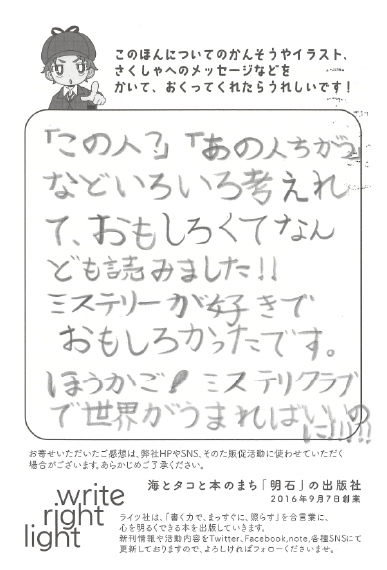 このほんについてのかんそうやイラスト、
さくしゃへのメッセージなどを
かいて、おくってくれたらうれしいです！
「この人？」「あの人ちがう」
などいろいろ考えれ
て、おもしろくてなん
ども読みました!!
ミステリーが好きで
おもしろかったです。
ほうかご！ミステリクラブ
で世界がうまれればいいの
に!!!!
お寄せいただいたご感想は、弊社HPやSNS、そのた販促活動に使わせていただく
場合がございます。あらかじめご了承ください。
海とタコと本のまち「明石」の出版社
2016年9月7日創業
write
right
light
ライツ社は、「書く力で、まっすぐに、照らす」を合言葉に、
心を明るくできる本を出版していきます。
新刊情報や活動内容をTwitter、Facebook、note、各種SNSにて
更新しておりますので、よろしければフォローくださいませ。